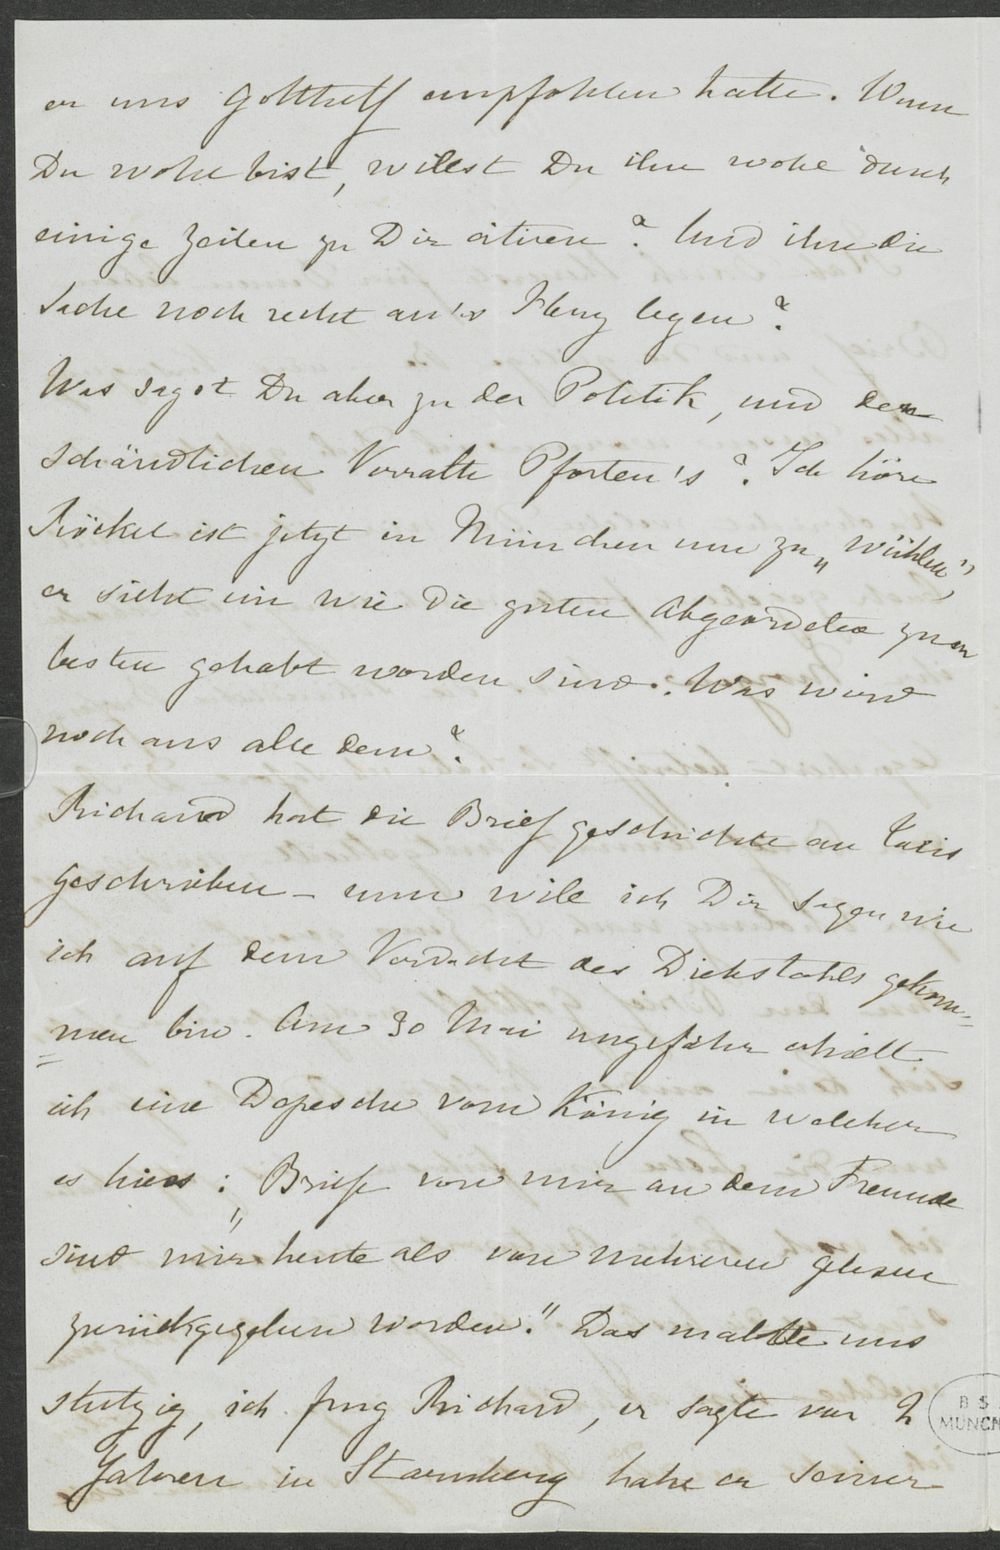 er uns Gotthelf empfohlen hatte. Wenn
Du wohl bist, willst Du ihn wohl durch
einige Zeilen zu Dir citiren? Und ihn die
Sache noch recht an's Herz legen?
Was sagst Du aber zu der Politik, und dem
schändlichen Verrathe Pforten's? Ich höre
Röckel ist jetzt in München um zu „wühlen",
er sieht ein wie die guten Abgeordnete zum
besten gehabt worden sind. Was wird
noch aus alle dem?
Richard hat die Briefgeschichte an Taxis
geschrieben – nun will ich Dir sagen wie
ich auf dem Verdacht des Diebstahls gekom=
=men bin. Am 30 Mai ungefähr erhielt
ich eine Depesche vom König in welcher
es hiess: „Briefe von mir an dem Freunde
sind mir heute als von mehreren gelesen
zurückgegeben worden." Das machte uns
stutzig, ich frug Richard, er sagte vor 2
Jahren in Starnberg habe er seiner
B S
MÜNCH